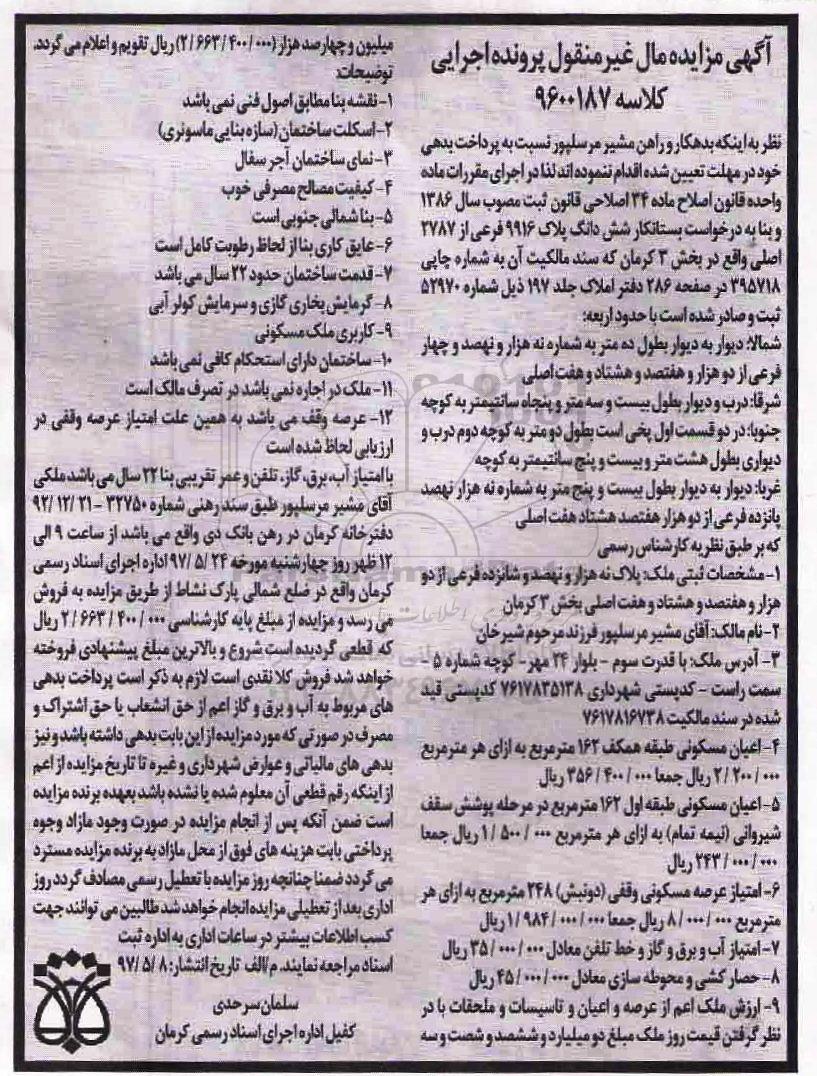 آگهی مزایده مال غیرمنقول پرونده اجرایی
کلاسه ۹۶۰۰۱۸۷
نظر به اینکه بدهکار و راهن مشیر مرسلپور نسبت به پرداخت بدهی
خود در مهلت تعیین شده اقدام ننموده اند لذا در اجرای مقررات ماده
واحده قانون اصلاح ماده ۳۴ اصلاحی قانون ثبت مصوب سال ۱۳۸۶
و بنا به درخواست بستانکار شش دانگ پلاک ۹۹۱۶ فرعی از ۲۷۸۷
اصلی واقع در بخش ۳ کرمان که سند مالکیت آن به شماره چاپی
۳۹۵۷۱۸ در صفحه ۲۸۶ دفتر املاک جلد ۱۹۷ ذیل شماره ۵۲۹۷۰
ثبت و صادر شده است با حدود اربعه:
شمالا: دیوار به دیوار بطول ده متر به شماره نه هزار و نهصد و چهار
فرعی از دو هزار و هفتصد و هشتاد و هفت اصلی
شرقا: درب و دیوار بطول بیست و سه متر و پنجاه سانتیمتر به کوچه
جنوبا: در دو قسمت اول پخی است بطول دو متر به کوچه دوم درب و
دیواری بطول هشت متر و بیست و پنج سانتیمتر به کوچه
غربا: دیوار به دیوار بطول بیست و پنج متر به شماره نه هزار نهصد
پانزده فرعی از دو هزار هفتصد هشتاد هفت اصلی
که بر طبق نظریه کارشناس رسمی
۱- مشخصات ثبتی ملک: پلاک نه هزار و نهصد و شانزده فرعی از دو
هزار و هفتصد و هشتاد و هفت اصلی بخش ۳ کرمان
۲- نام مالک: آقای مشیر مرسلپور فرزند مرحوم شیرخان
۳- آدرس ملک: با قدرت سوم - بلوار ۲۴ مهر - کوچه شماره ۵ -
سمت راست - کدپستی شهرداری ۷۶۱۷۸۳۵۱۳۸ کدپستی قید
شده در سند مالکیت ۷۶۱۷۸۱۶۷۳۸
۴- اعیان مسکونی طبقه همکف ۱۶۲ مترمربع به ازای هر مترمربع
۲/۲۰۰/۰۰۰ ریال جمعا ۳۵۶/۴۰۰/۰۰۰ ریال
۵- اعیان مسکونی طبقه اول ۱۶۲ مترمربع در مرحله پوشش سقف
شیروانی (نیمه تمام) به ازای هر مترمربع ۱/۵۰۰/۰۰۰ ریال جمعا
۲۴۳/۰۰۰/۰۰۰ ریال
۶- امتیاز عرصه مسکونی وقفی (دونبش) ۲۴۸ مترمربع به ازای هر
مترمربع ۸/۰۰۰/۰۰۰ ریال جمعا ۱/۹۸۴/۰۰۰/۰۰۰ ریال
۷- امتیاز آب و برق و گاز و خط تلفن معادل ۳۵/۰۰۰/۰۰۰ ریال
۸- حصار کشی و محوطه سازی معادل ۴۵/۰۰۰/۰۰۰ ریال
۹- ارزش ملک اعم از عرصه و اعیان و تاسیسات و ملحقات با در
نظر گرفتن قیمت روز ملک مبلغ دو میلیارد و ششصد و شصت و سه
میلیون و چهارصد هزار (۲/۶۶۳/۴۰۰/۰۰۰) ریال تقویم و اعلام می گردد.
توضیحات:
۱- نقشه بنا مطابق اصول فنی نمی باشد
۲- اسکلت ساختمان (سازه بنایی ماسونری)
۳- نمای ساختمان آجر سفال
۴- کیفیت مصالح مصرفی خوب
۵- بنا شمالی جنوبی است
۶- عایق کاری بنا از لحاظ رطوبت کامل است
۷- قدمت ساختمان حدود ۲۲ سال می باشد
۸- گرمایش بخاری گازی و سرمایش کولر آبی
۹- کاربری ملک مسکونی
۱۰- ساختمان دارای استحکام کافی نمی باشد
۱۱- ملک در اجاره نمی باشد در تصرف مالک است
۱۲- عرصه وقف می باشد به همین علت امتیاز عرصه وقفی در
ارزیابی لحاظ شده است
با امتیاز آب، برق، گاز، تلفن و عمر تقریبی بنا ۲۲ سال می باشد ملکی
آقای مشیر مرسلپور طبق سند رهنی شماره ۳۲۷۵۰ - ۹۲/۱۲/۲۱
دفترخانه کرمان در رهن بانک دی واقع می باشد از ساعت ۹ الی
۱۲ ظهر روز چهارشنبه مورخه ۹۷/۵/۲۴ اداره اجرای اسناد رسمی
کرمان واقع در ضلع شمالی پارک نشاط از طریق مزایده به فروش
می رسد و مزایده از مبلغ پایه کارشناسی ۲/۶۶۳/۴۰۰/۰۰۰ ریال
که قطعی گردیده است شروع و بالاترین مبلغ پیشنهادی فروخته
خواهد شد فروش کلا نقدی است لازم به ذکر است پرداخت بدهی
های مربوط به آب و برق و گاز اعم از حق انشعاب یا حق اشتراک و
مصرف در صورتی که مورد مزایده از این بابت بدهی داشته باشد و نیز
بدهی های مالیاتی و عوارض شهرداری و غیره تا تاریخ مزایده از اعم
از اینکه رقم قطعی آن معلوم شده یا نشده باشد بعهده برنده مزایده
است ضمن آنکه پس از انجام مزایده در صورت وجود مازاد وجوه
پرداختی بابت هزینه های فوق از محل مازاد به برنده مزایده مسترد
می گردد ضمنا چنانچه روز مزایده با تعطیل رسمی مصادف گردد روز
اداری بعد از تعطیلی مزایده انجام خواهد شد طالبین می توانند جهت
کسب اطلاعات بیشتر در ساعات اداری به اداره ثبت
اسناد مراجعه نمایند. م/الف تاریخ انتشار: ۹۷/۵/۸
سلمان سرحدی
کفیل اداره اجرای اسناد رسمی کرمان